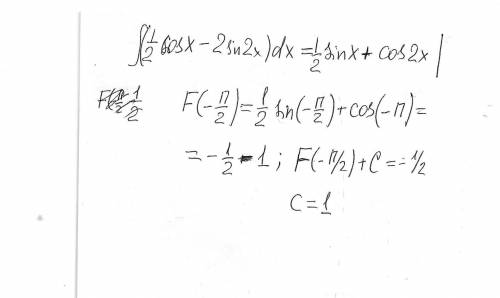 ∫(1/2 cosx − 2sin2x)dx = 1/2 sinx + cos2x |
F(−π/2) = 1/2 sin(−π/2) + cos(−π) =
= −1/2 − 1 ; F(−π/2) + C = −1/2
C = 1